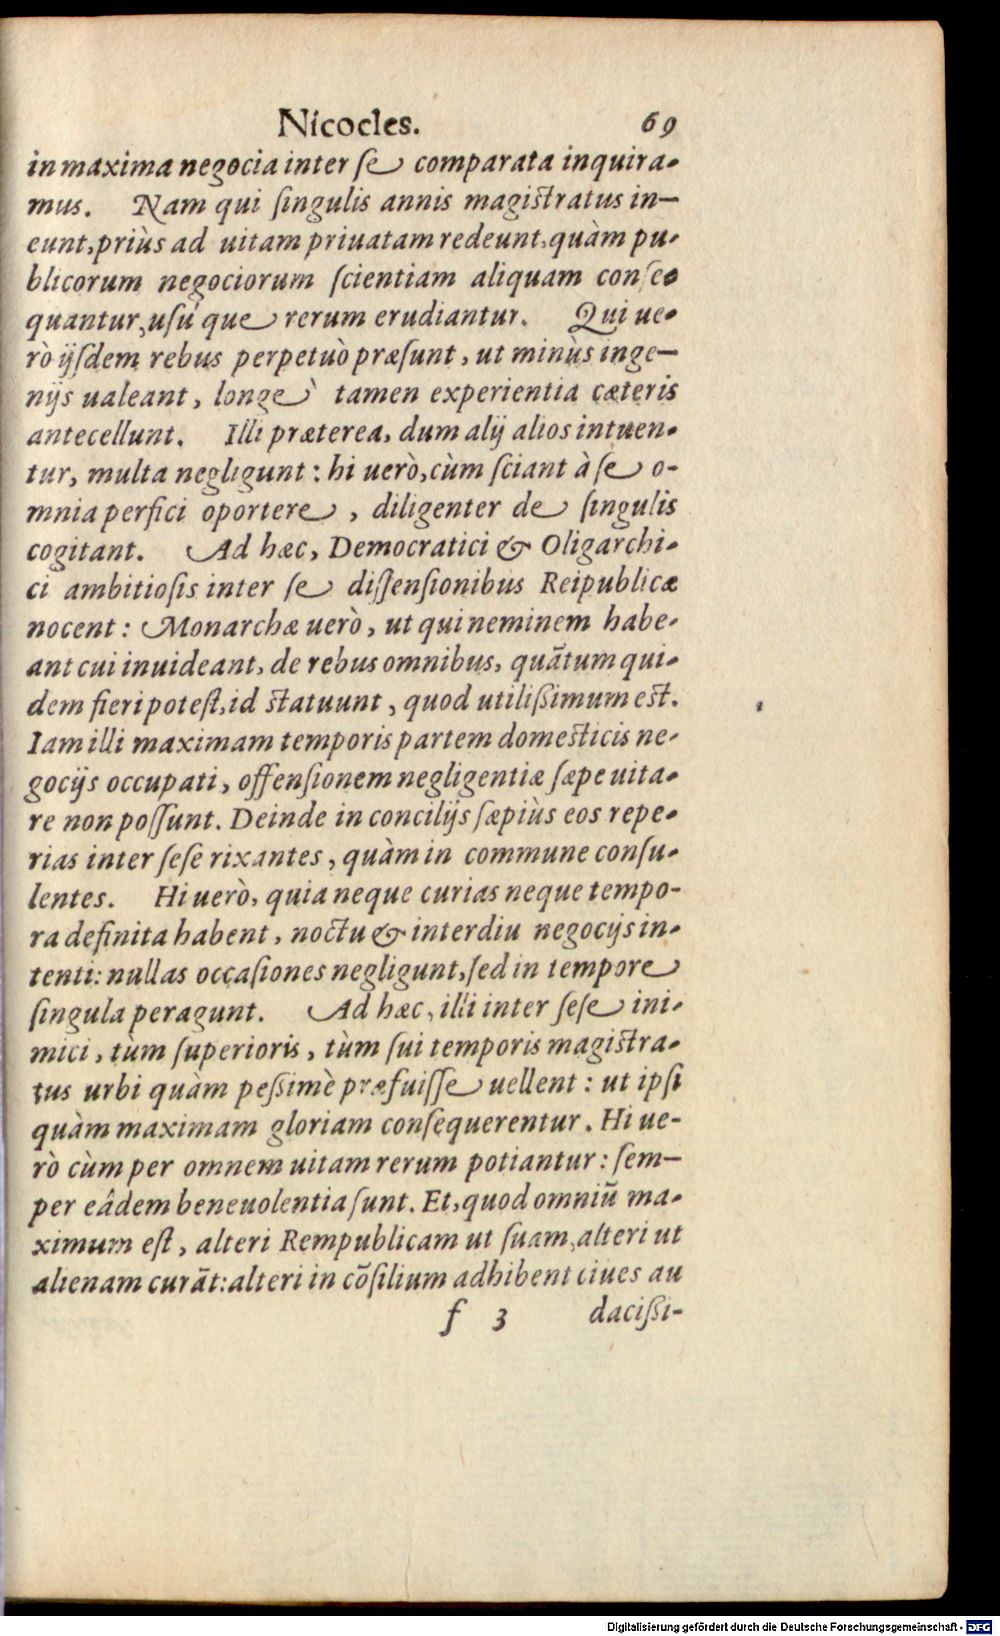 Nicocles. 69
in maxima negocia inter ſe comparata inquira-
mus. Nam qui ſingulis annis magiſtratus in-
eunt, priùs ad uitam priuatam redeunt, quàm pu-
blicorum negociorum ſcientiam aliquam conſe-
quantur, uſúque rerum erudiantur. Qui ue-
rò ijſdem rebus perpetuò præſunt, ut minùs inge-
nijs ualeant, longè tamen experientia cæteris
antecellunt. Illi præterea, dum alij alios intuen-
tur, multa negligunt: hi uerò, cùm ſciant à ſe o-
mnia perfici oportere, diligenter de ſingulis
cogitant. Ad hæc, Democratici & Oligarchi-
ci ambitioſis inter ſe diſſenſionibus Reipublicæ
nocent: Monarchæ uerò, ut qui neminem habe-
ant cui inuideant, de rebus omnibus, quātum qui-
dem fieri poteſt, id ſtatuunt, quod utilißimum eſt.
Iam illi maximam temporis partem domeſticis ne-
gocijs occupati, offenſionem negligentiæ ſæpe uita-
re non poſſunt. Deinde in concilijs ſæpiùs eos repe-
rias inter ſeſe rixantes, quàm in commune conſu-
lentes. Hi uerò, quia neque curias neque tempo-
ra definita habent, noctu & interdiu negocijs in-
tenti: nullas occaſiones negligunt, ſed in tempore
ſingula peragunt. Ad hæc, illi inter ſeſe ini-
mici, tùm ſuperioris, tùm ſui temporis magiſtra-
tus urbi quàm peßimè præfuiſſe uellent: ut ipſi
quàm maximam gloriam conſequerentur. Hi ue-
rò cùm per omnem uitam rerum potiantur: ſem-
per eâdem beneuolentia ſunt. Et, quod omniū ma-
ximum eſt, alteri Rempublicam ut ſuam, alteri ut
alienam curāt: alteri in cōſilium adhibent ciues au
f 3 dacißi-
Digitalisierung gefördert durch die Deutsche Forschungsgemeinschaft - DFG